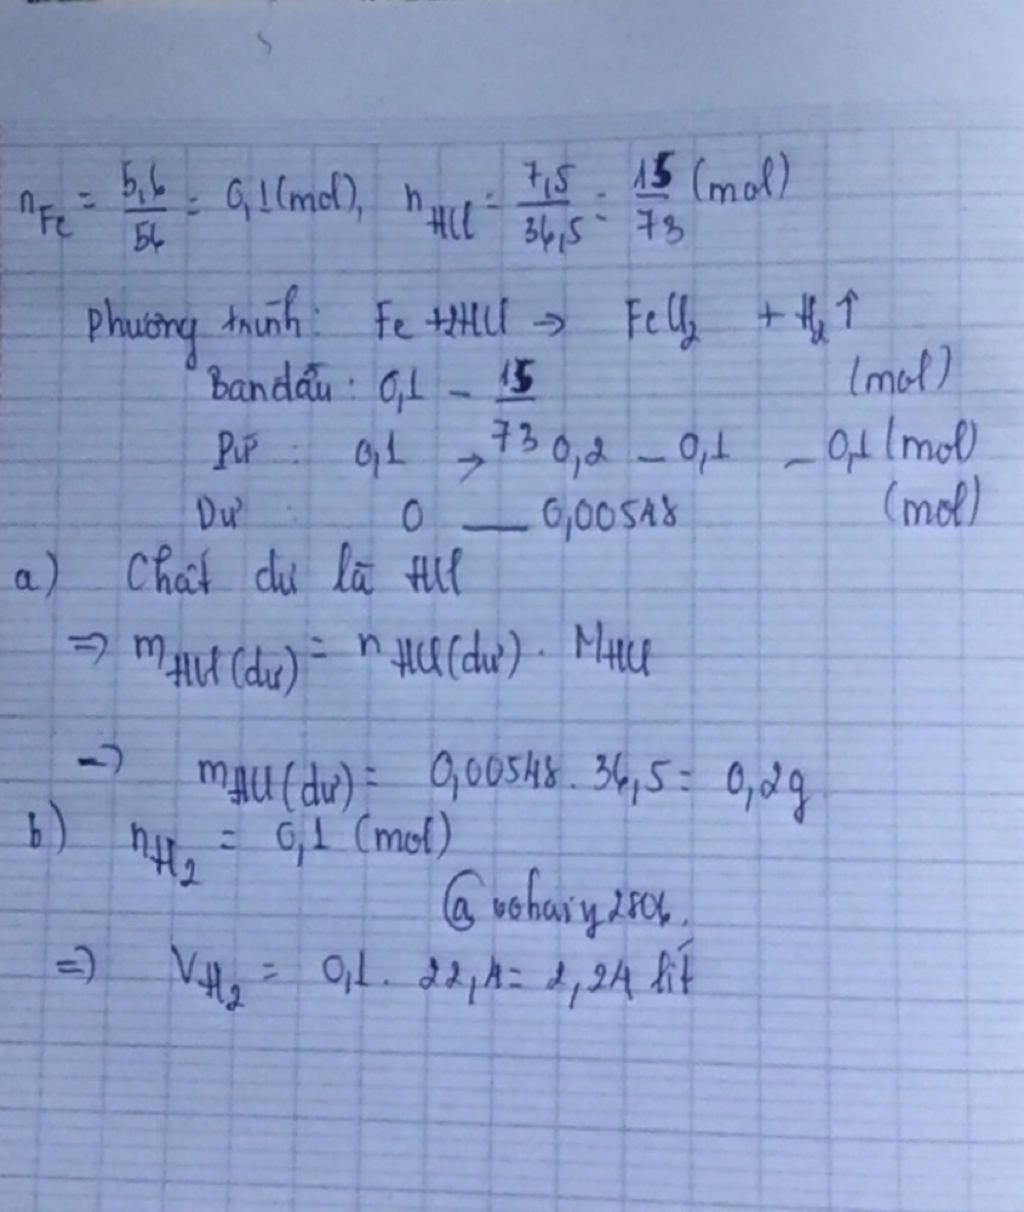 nFe = 5,6/56 = 0,1(mol), nHCl = 7,5/36,5 = 15/73 (mol)
Phương trình: Fe +2HCl → FeCl2 + H2↑
Ban đầu : 0,1 – 15/73 (mol)
PƯ : 0,1 → 0,2 – 0,1 – 0,1 (mol)
Dư : 0 — 0,00548 (mol)
a) Chất dư là HCl
=> mHCl(dư) = nHCl(dư) . MHCl
=> mHCl(dư) = 0,00548 . 36,5 = 0,2g
b) nH2 = 0,1 (mol)
@vohaiy2806.
=> VH2 = 0,1 . 22,4 = 2,24 lít